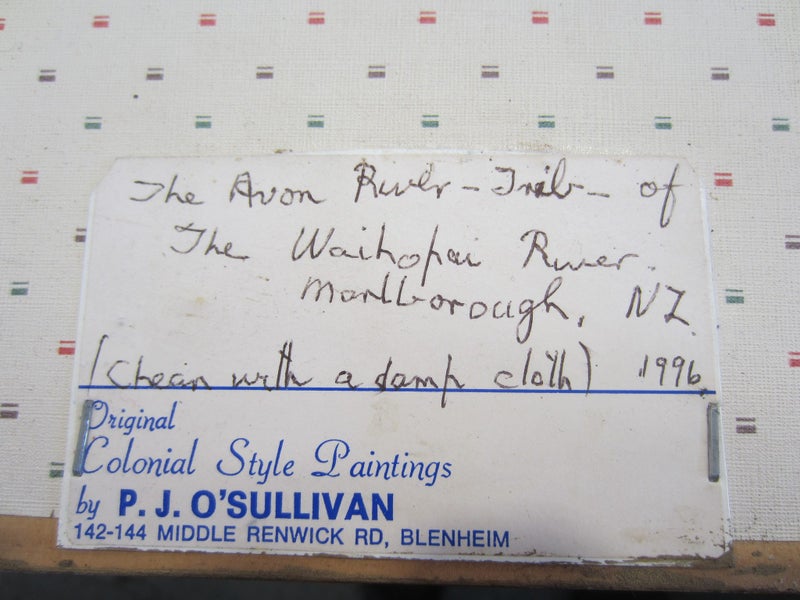 The Avon River - Trib - of
The Waihopai River.
Marlborough, NZ
(Clean with a damp cloth) 1996
Original
Colonial Style Paintings
by P. J. O'SULLIVAN
142-144 MIDDLE RENWICK RD, BLENHEIM